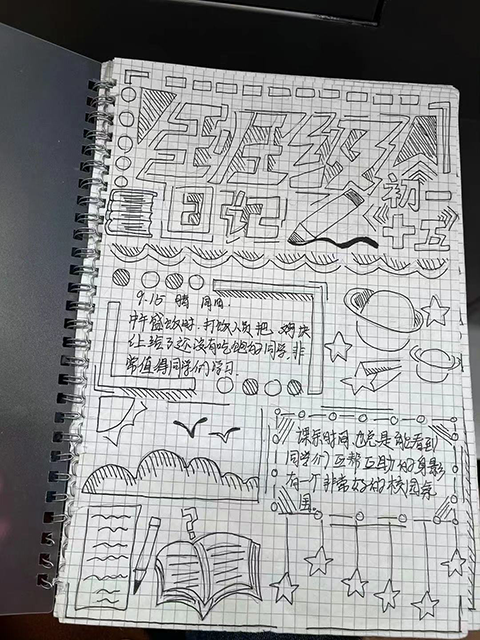 班级
日记
初一
十五
9.15 晴 周一
中午盛饭时,打饭人员把鸡块
让给了还没有吃饱的同学,非
常值得同学们学习.
课余时间也总是能看到
同学们互帮互助的身影
有一个非常好的校园氛
围.
?